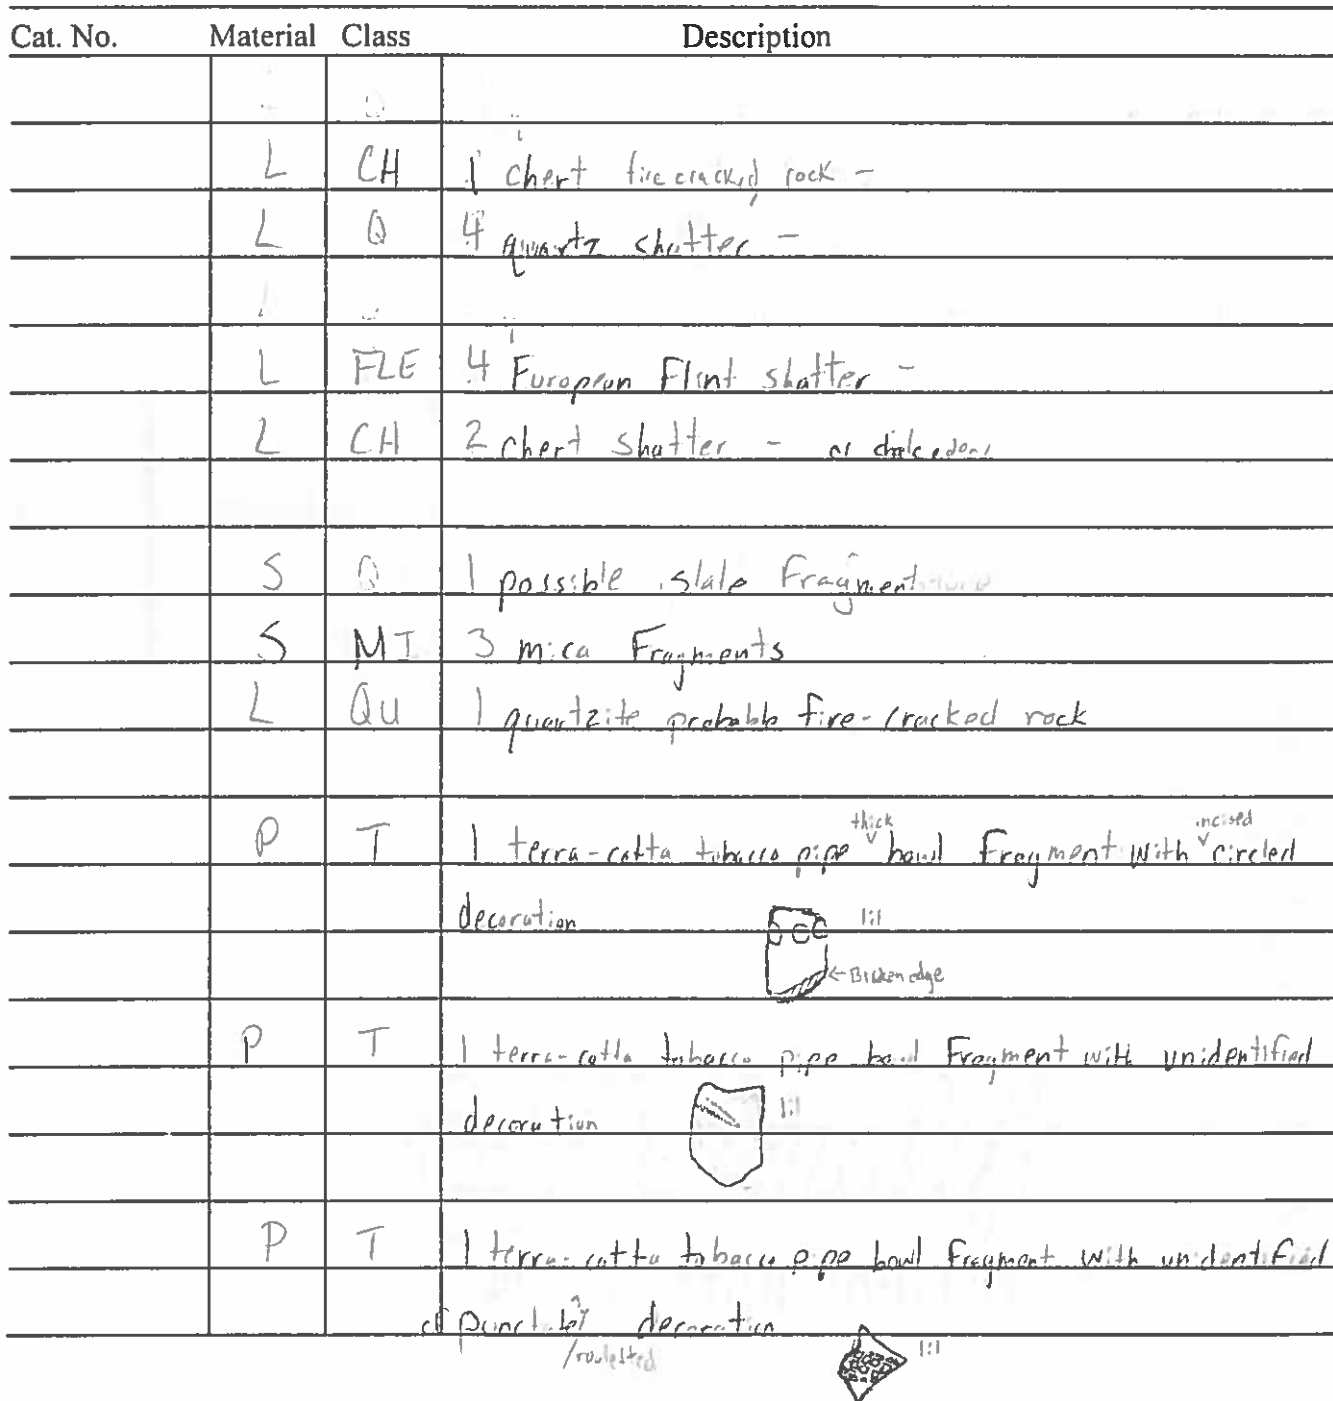 Cat. No. Material Class Description
L CH 1 chert fire cracked rock -
L Q 4 quartz shatter -
L FLE 4 European Flint shatter -
L CH 2 chert shatter - or chalcedony
S Q 1 possible slate Fragment
S MI 3 mica Fragments
L QU 1 quartzite probable fire-cracked rock
thick incised
P T 1 terra-cotta tobacco pipe bowl fragment with circled
decoration 1:1
← Broken edge
P T 1 terra-cotta tobacco pipe bowl Fragment with unidentified
decoration 1:1
P T 1 terra-cotta tobacco pipe bowl fragment with unidentified
punctate? decoration
/rouletted 1:1